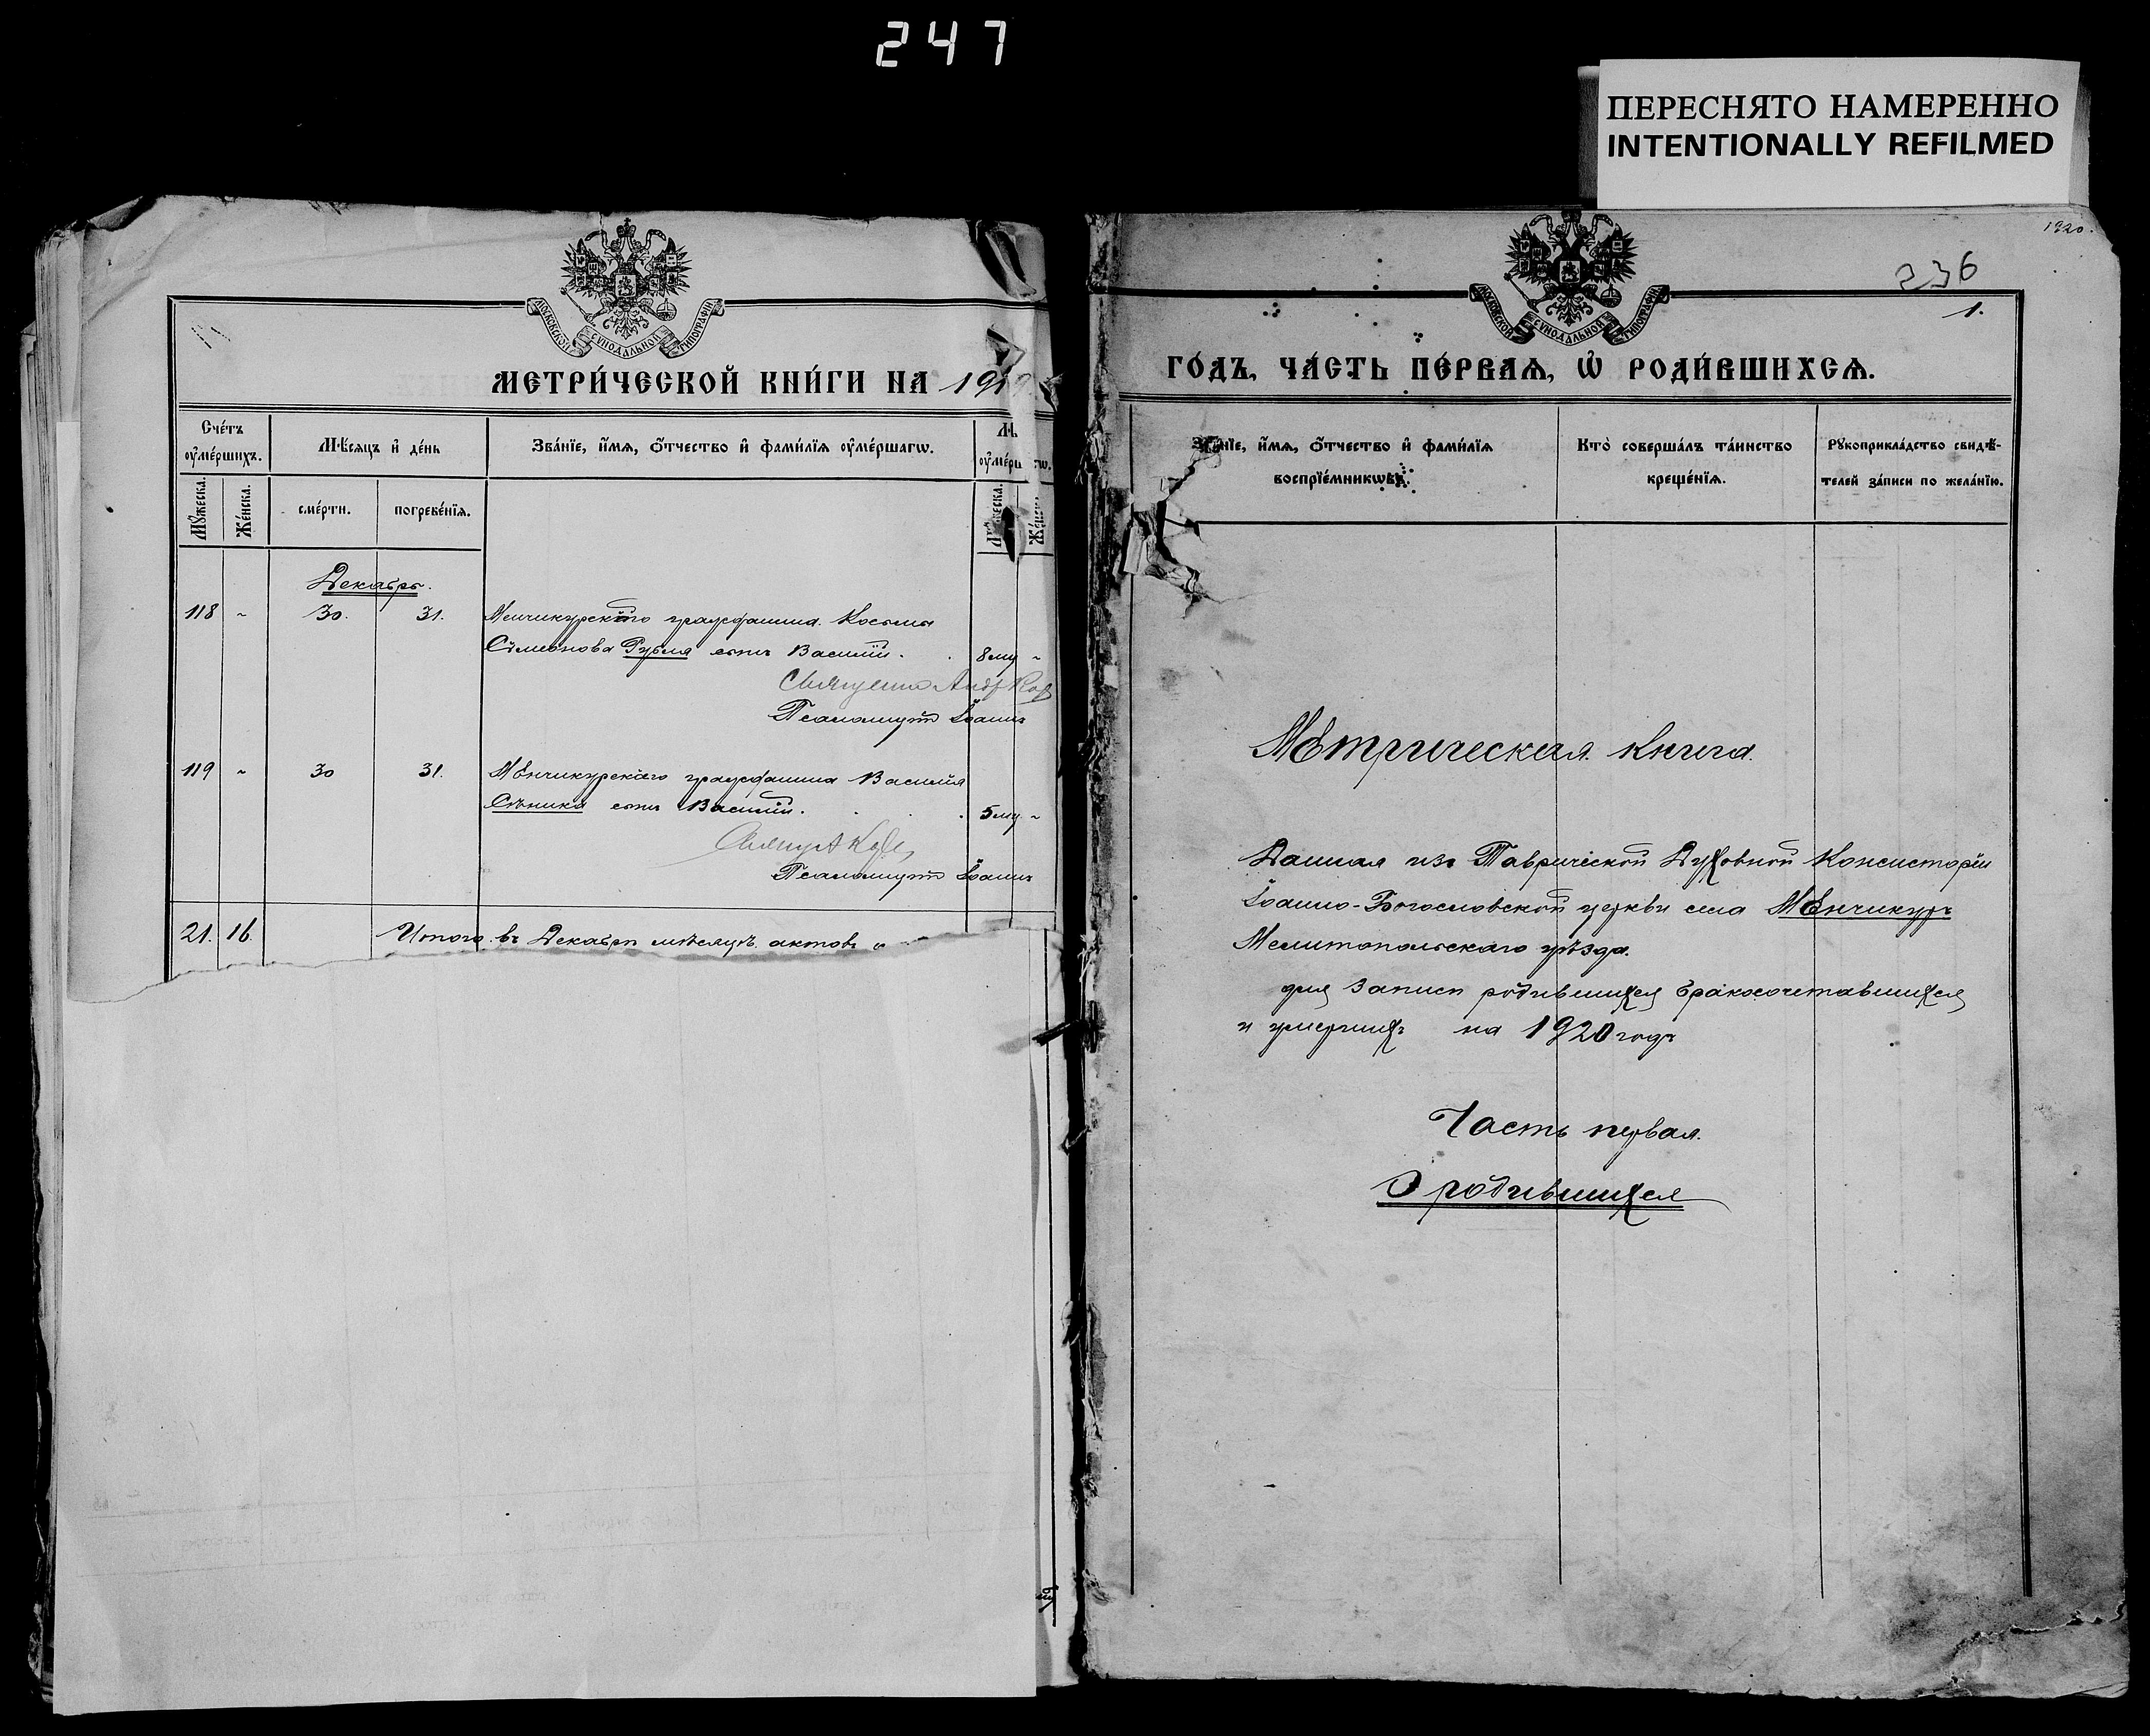 247
ПЕРЕСНЯТО НАМЕРЕННО
INTENTIONALLY REFILMED
МОСКОВСКОЙ СѴНОДАЛЬНОЙ ТИПОГРАФІИ
МЕТРИ́ЧЕСКОЙ КНИ́ГИ НА 1919
Сче́тъ
оу҆ме́ршихъ.
Мѣ́сяцъ и҆ де́нь
Зва́нїе, и҆́мѧ, ѻ҆́тчество и҆ фами́лїѧ оу҆ме́ршагѡ.
Мꙋ́жеска.
Же́нска.
сме́рти.
погребе́нїѧ.
Декабрь.
118 " 30. 31. Менчикурскаго гражданина Косьмы
Симеонова Рубля сынъ Василій. 8 мц "
Священникъ Анд
Псаломщикъ Іоаннъ
119 " 30 31. Менчикурскаго гражданина Василія
Сѣника сынъ Василій. 5 мц "
Псаломщикъ Іоаннъ
21. 16. Итого въ Декабрѣ мѣсяцѣ актовъ
1920.
236
1.
МОСКОВСКОЙ СѴНОДАЛЬНОЙ ТИПОГРАФІИ
ГО́ДЪ, ЧА́СТЬ ПЕ́РВАѦ, Ѡ҆ РОДИ́ВШИХСѦ.
Зва́нїе, и҆́мѧ, ѻ҆́тчество и҆ фами́лїѧ
воспрїе́мникѡвъ.
Кто̀ соверша́лъ та́инство
креще́нїѧ.
Рꙋкоприкла́дство свидѣ́-
телей за́писи по жела́нїю.
Метрическая книга.
Данная изъ Таврической Духовной Консисторіи
Іоанно-Богословской церкви села Менчикуръ
Мелитопольскаго уѣзда.
для записи родившихся бракосочетавшихся
и умершихъ на 1920 годъ
Часть первая.
О родившихся